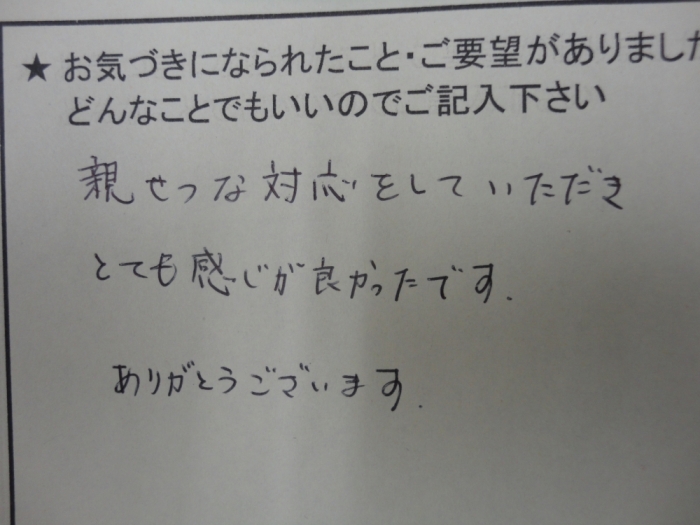 ★お気づきになられたこと・ご要望がありました
どんなことでもいいのでご記入下さい
親せつな対応をしていただき
とても感じが良かったです.
ありがとうございます.